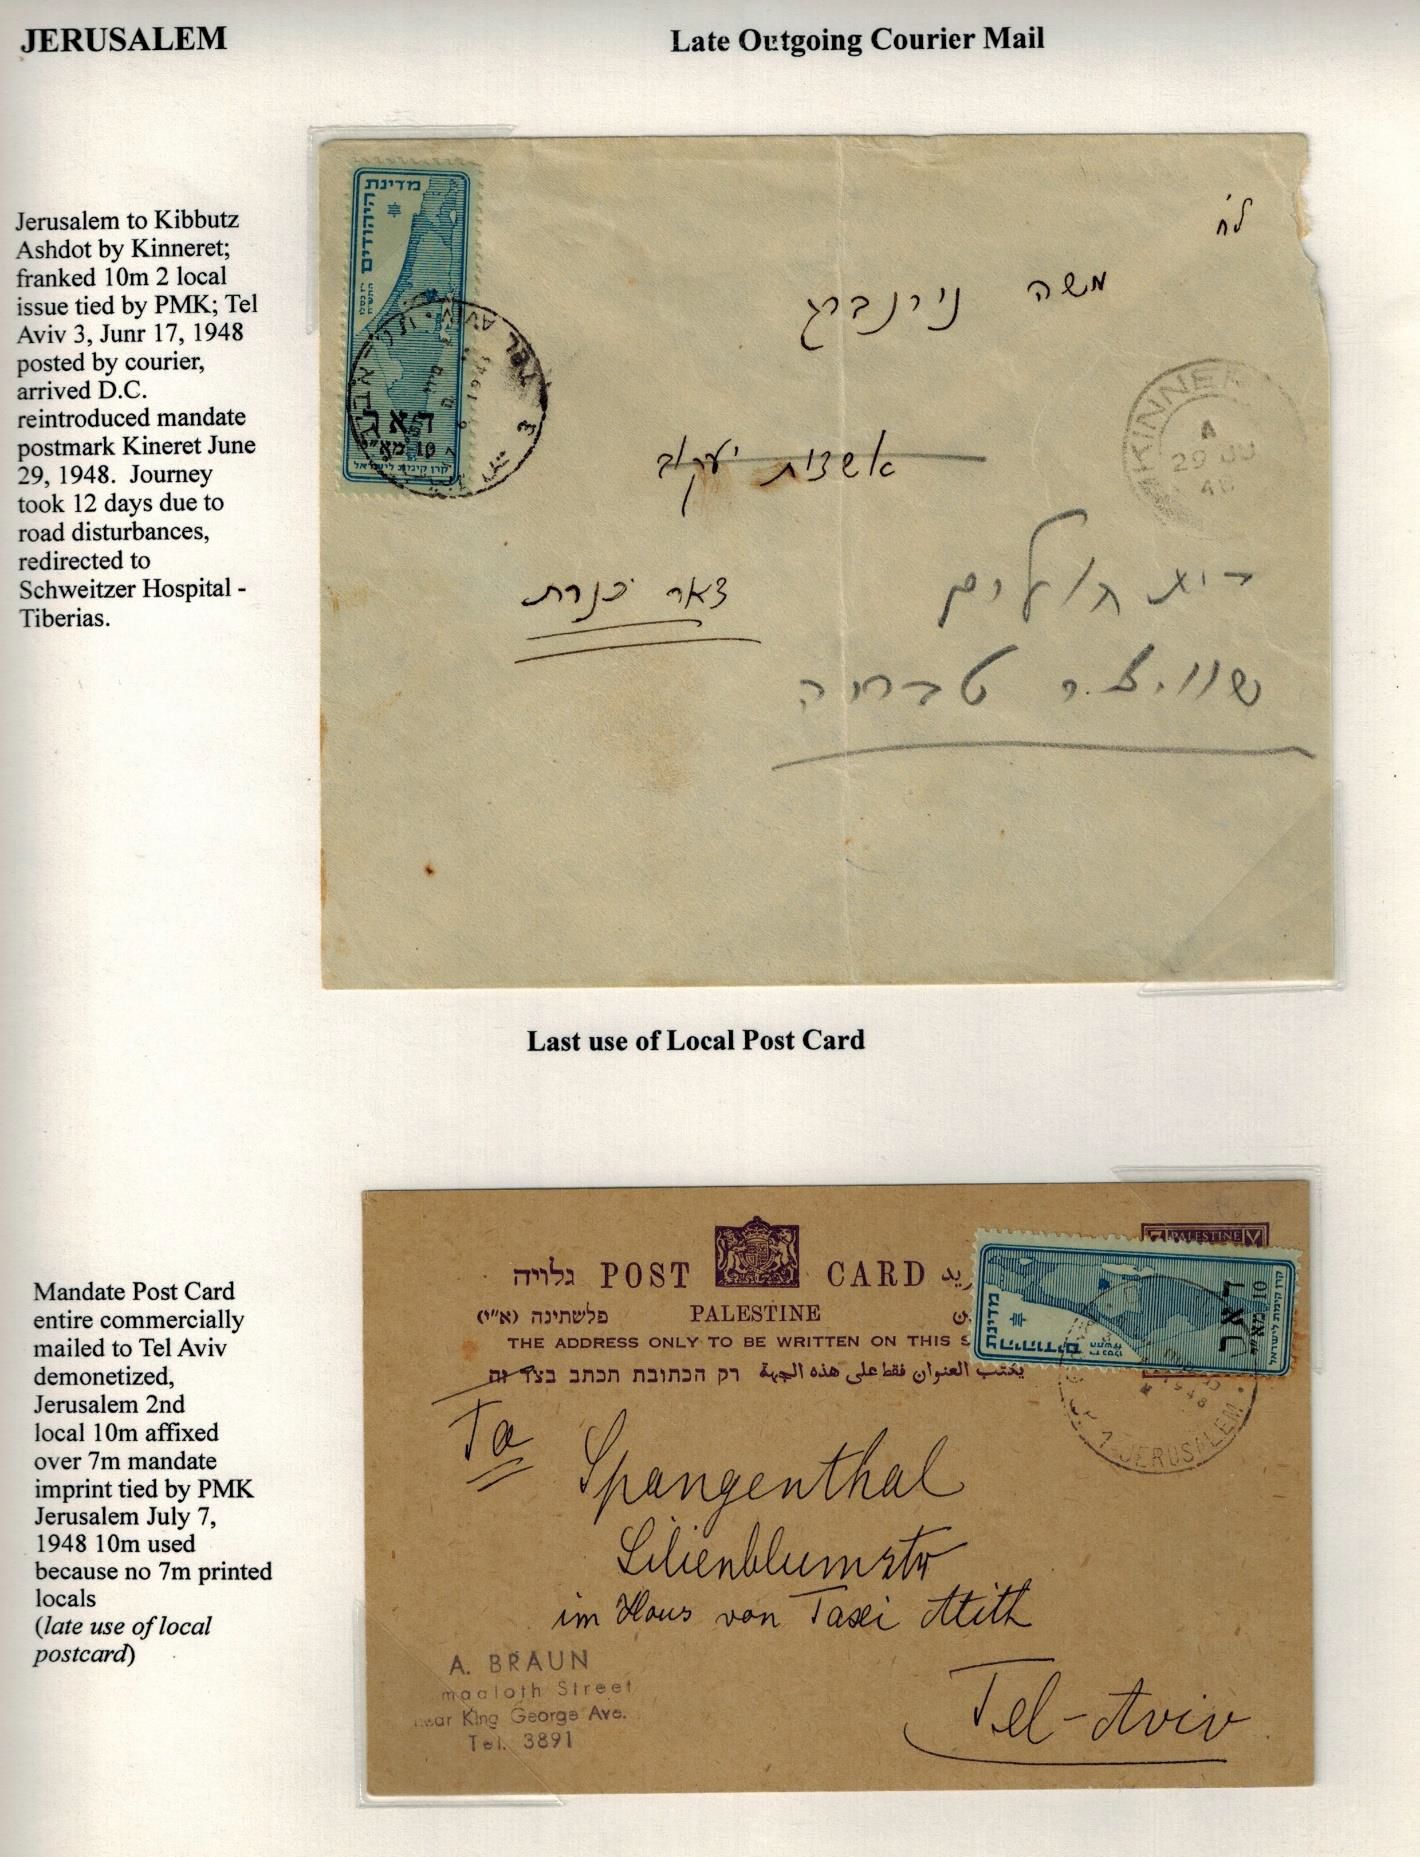 JERUSALEM
Late Outgoing Courier Mail
Jerusalem to Kibbutz
Ashdot by Kinneret;
franked 10m 2 local
issue tied by PMK; Tel
Aviv 3, Junr 17, 1948
posted by courier,
arrived D.C.
reintroduced mandate
postmark Kineret June
29, 1948. Journey
took 12 days due to
road disturbances,
redirected to
Schweitzer Hospital -
Tiberias.
מדינת
היהודים
דאר
10 מא"י
קרן קימת לישראל
TEL AVIV
3
משה נירנברג
אשדות יעקוב
דאר כנרת
KINNER
A
29 JU
48
בית חולים
שוויצר טבריה
Last use of Local Post Card
Mandate Post Card
entire commercially
mailed to Tel Aviv
demonetized,
Jerusalem 2nd
local 10m affixed
over 7m mandate
imprint tied by PMK
Jerusalem July 7,
1948 10m used
because no 7m printed
locals
(late use of local
postcard)
גלויה POST CARD
פלשתינה (א"י) PALESTINE
THE ADDRESS ONLY TO BE WRITTEN ON THIS S
רק הכתובת תכתב בצד זה يكتب العنوان فقط على هذه الجهة
7 PALESTINE V
מדינת
היהודים
דאר
10 מא"י
קרן קימת לישראל
JERUSALEM
To
Spangenthal
Lilienblumstr
im Haus von Taxi
Tel-Aviv
A. BRAUN
maaloth Street
near King George Ave.
Tel. 3891